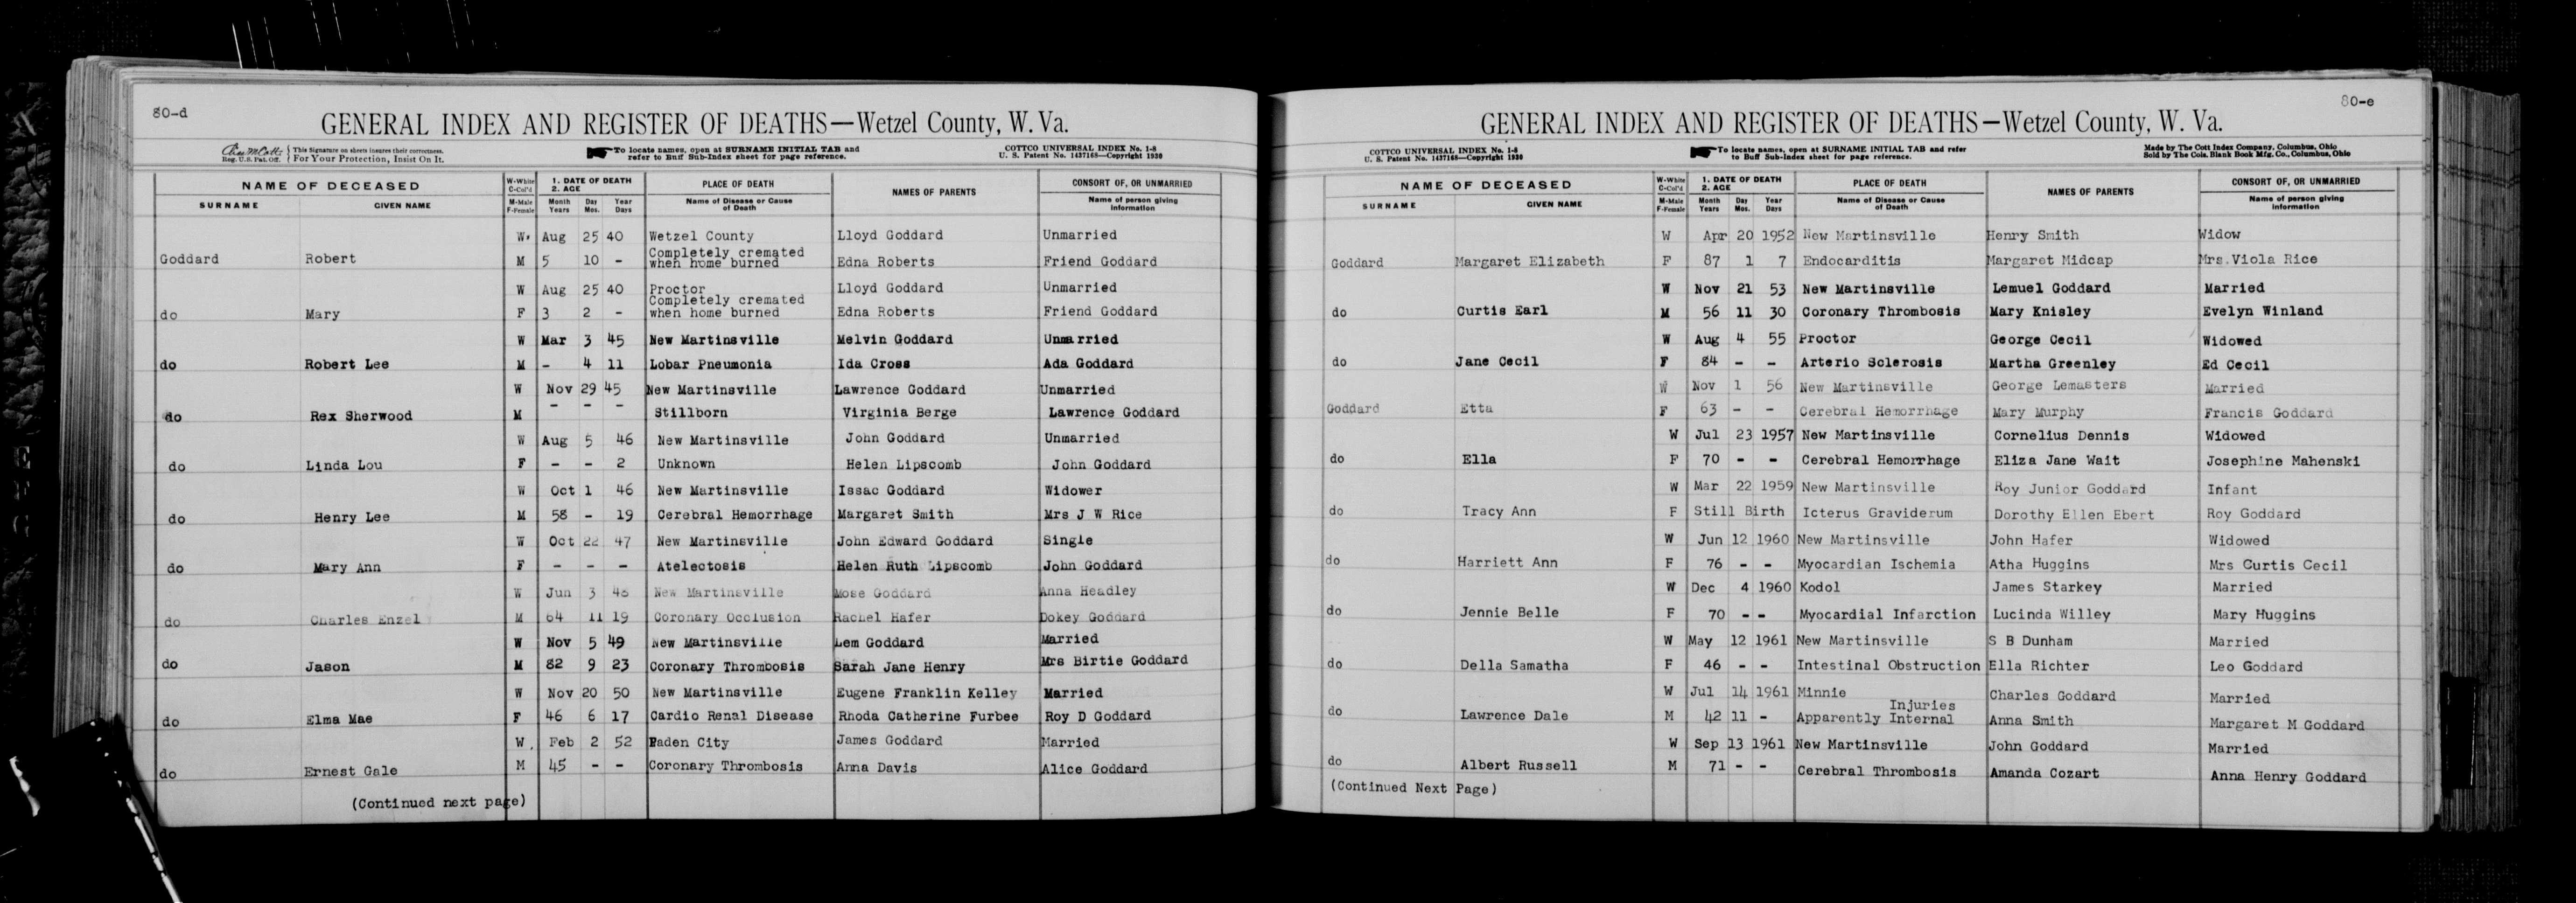 80-d
GENERAL INDEX AND REGISTER OF DEATHS—Wetzel County, W. Va.
Reg. U.S. Pat. Off. { This Signature on sheets insures their correctness. For Your Protection, Insist On It.
To locate names, open at SURNAME INITIAL TAB and refer to Buff Sub-Index sheet for page reference.
COTTCO UNIVERSAL INDEX No. 1-8
U. S. Patent No. 1437168—Copyright 1930
NAME OF DECEASED W-White C-Col'd 1. DATE OF DEATH 2. AGE PLACE OF DEATH NAMES OF PARENTS CONSORT OF, OR UNMARRIED
SURNAME GIVEN NAME M-Male F-Female Month Years Day Mos. Year Days Name of Disease or Cause of Death Name of person giving information
W Aug 25 40 Wetzel County Lloyd Goddard Unmarried
Goddard Robert M 5 10 - Completely cremated when home burned Edna Roberts Friend Goddard
W Aug 25 40 Proctor Lloyd Goddard Unmarried
do Mary F 3 2 - Completely cremated when home burned Edna Roberts Friend Goddard
W Mar 3 45 New Martinsville Melvin Goddard Unmarried
do Robert Lee M - 4 11 Lobar Pneumonia Ida Cross Ada Goddard
W Nov 29 45 New Martinsville Lawrence Goddard Unmarried
do Rex Sherwood M - - - Stillborn Virginia Berge Lawrence Goddard
W Aug 5 46 New Martinsville John Goddard Unmarried
do Linda Lou F - - 2 Unknown Helen Lipscomb John Goddard
W Oct 1 46 New Martinsville Issac Goddard Widower
do Henry Lee M 58 - 19 Cerebral Hemorrhage Margaret Smith Mrs J W Rice
W Oct 47 New Martinsville John Edward Goddard Single
do Mary Ann F - - - Atelectosis Helen Ruth Lipscomb John Goddard
W Jun 3 New Martinsville Mose Goddard Anna Headley
do Charles Enzel M 64 11 19 Coronary Occlusion Rachel Hafer Dokey Goddard
W Nov 5 49 New Martinsville Lem Goddard Married
do Jason M 82 9 23 Coronary Thrombosis Sarah Jane Henry Mrs Birtie Goddard
W Nov 20 50 New Martinsville Eugene Franklin Kelley Married
do Elma Mae F 46 6 17 Cardio Renal Disease Rhoda Catherine Furbee Roy D Goddard
W Feb 2 52 Paden City James Goddard Married
do Ernest Gale M 45 - - Coronary Thrombosis Anna Davis Alice Goddard
(Continued next page)
80-e
GENERAL INDEX AND REGISTER OF DEATHS—Wetzel County, W. Va.
COTTCO UNIVERSAL INDEX No. 1-8
U. S. Patent No. 1437168—Copyright 1930
To locate names, open at SURNAME INITIAL TAB and refer to Buff Sub-Index sheet for page reference.
Made by The Cott Index Company, Columbus, Ohio
Sold by The Cols. Blank Book Mfg. Co., Columbus, Ohio
NAME OF DECEASED W-White C-Col'd 1. DATE OF DEATH 2. AGE PLACE OF DEATH NAMES OF PARENTS CONSORT OF, OR UNMARRIED
SURNAME GIVEN NAME M-Male F-Female Month Years Day Mos. Year Days Name of Disease or Cause of Death Name of person giving information
W Apr 20 1952 New Martinsville Henry Smith Widow
Goddard Margaret Elizabeth F 87 1 7 Endocarditis Margaret Midcap Mrs.Viola Rice
W Nov 21 53 New Martinsville Lemuel Goddard Married
do Curtis Earl M 56 11 30 Coronary Thrombosis Mary Knisley Evelyn Winland
W Aug 4 55 Proctor George Cecil Widowed
do Jane Cecil F 84 - - Arterio Sclerosis Martha Greenley Ed Cecil
W Nov 1 56 New Martinsville George Lemasters Married
Goddard Etta F 63 - - Cerebral Hemorrhage Mary Murphy Francis Goddard
W Jul 23 1957 New Martinsville Cornelius Dennis Widowed
do Ella F 70 - - Cerebral Hemorrhage Eliza Jane Wait Josephine Mahenski
W Mar 22 1959 New Martinsville Roy Junior Goddard Infant
do Tracy Ann F Still Birth Icterus Graviderum Dorothy Ellen Ebert Roy Goddard
W Jun 12 1960 New Martinsville John Hafer Widowed
do Harriett Ann F 76 - - Myocardian Ischemia Atha Huggins Mrs Curtis Cecil
W Dec 4 1960 Kodol James Starkey Married
do Jennie Belle F 70 - - Myocardial Infarction Lucinda Willey Mary Huggins
W May 12 1961 New Martinsville S B Dunham Married
do Della Samatha F 46 - - Intestinal Obstruction Ella Richter Leo Goddard
W Jul 14 1961 Minnie Charles Goddard Married
do Lawrence Dale M 42 11 - Apparently Internal Injuries Anna Smith Margaret M Goddard
W Sep 13 1961 New Martinsville John Goddard Married
do Albert Russell M 71 - - Cerebral Thrombosis Amanda Cozart Anna Henry Goddard
(Continued Next Page)